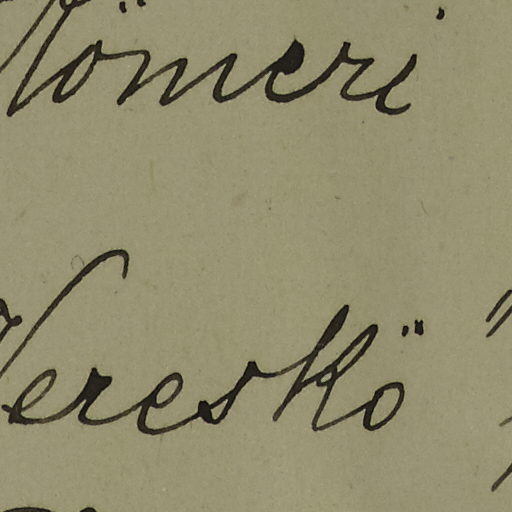 Römeri
Vereskö "